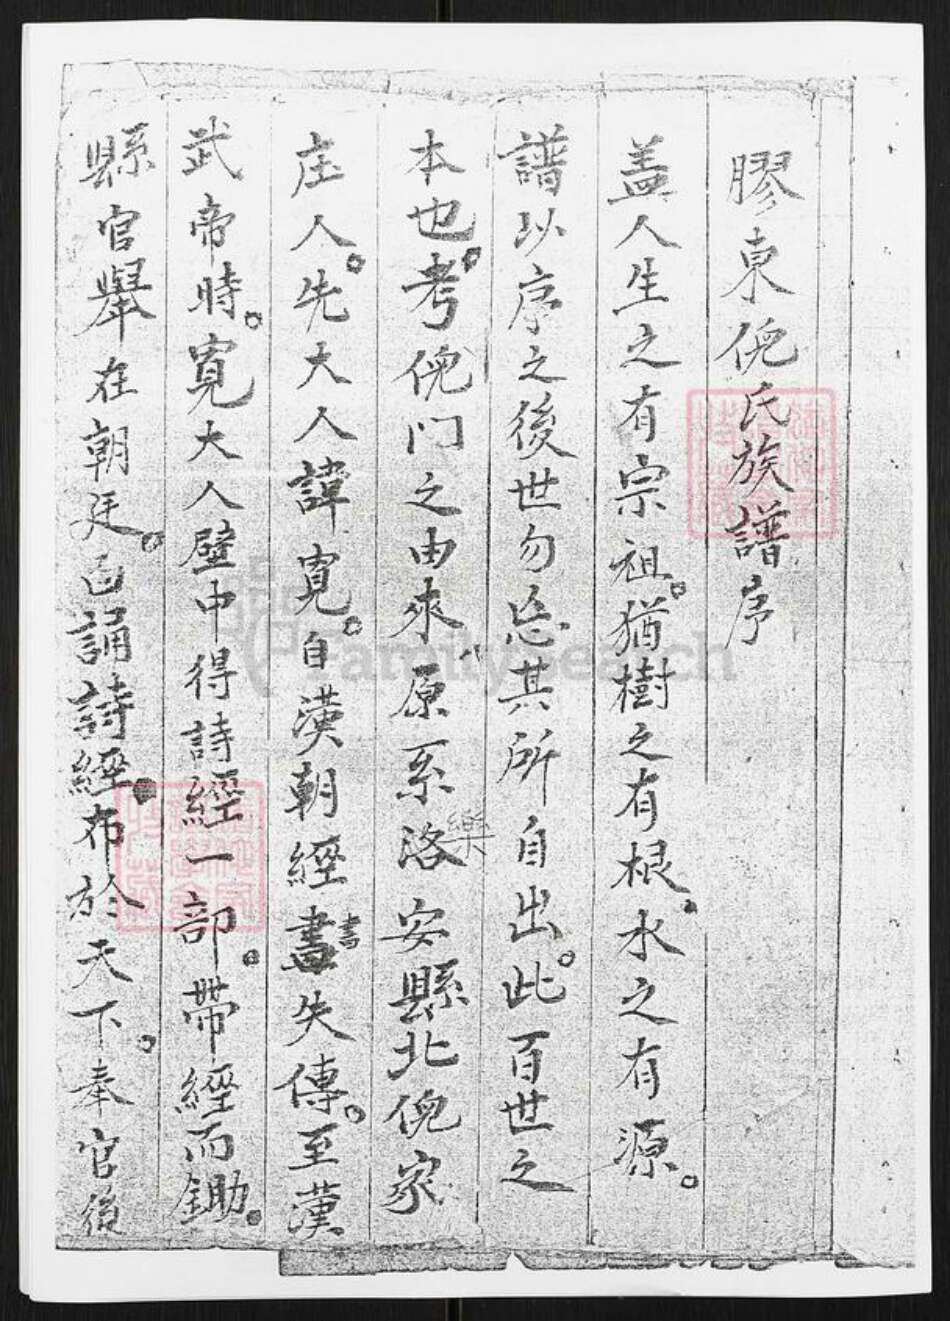 膠東倪氏族譜序
盖人生之有宗祖。猶樹之有根。水之有源。
譜以序之後世勿忘其所自出。此百世之
本也。考倪門之由來。原系洛安縣北倪家
樂
庄人。先大人諱寬。自漢朝經書失傳。至漢
書
武帝時。寬大人壁中得詩經一部。帶經而鋤。
縣官舉在朝廷。已誦詩經。布於天下。奉官後
FamilySearch